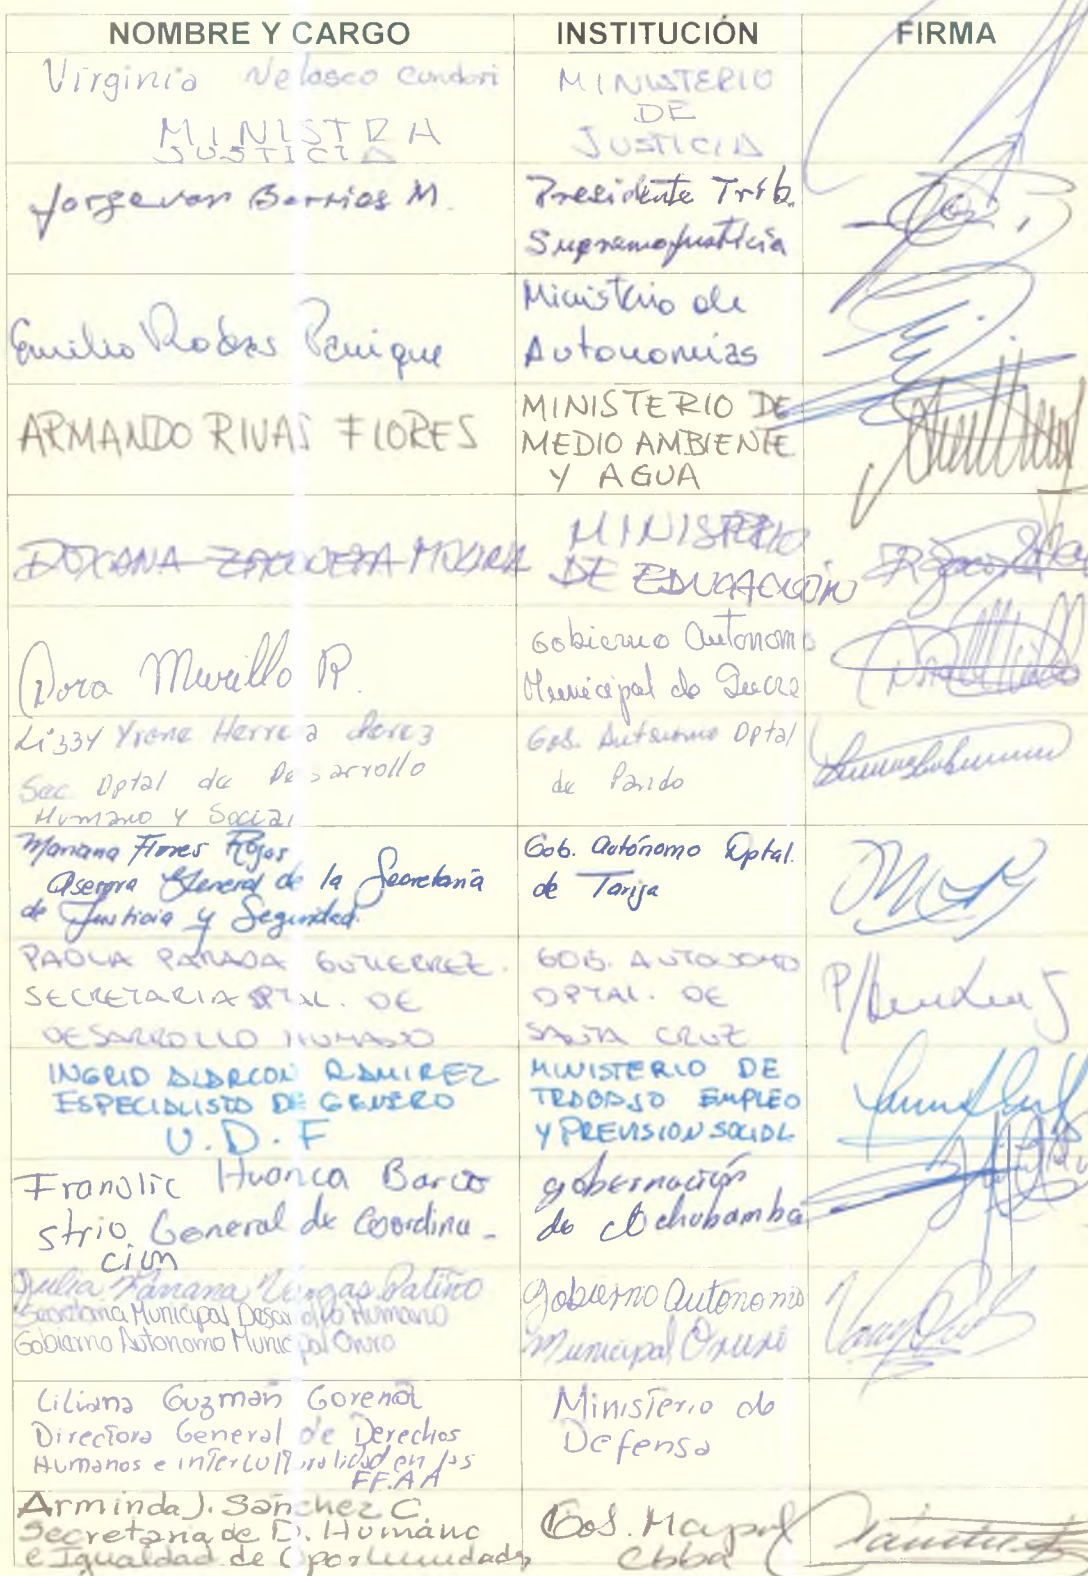 NOMBRE Y CARGO INSTITUCIÓN FIRMA
Virginia Velasco Condori
MINISTRA
JUSTICIA
MINISTERIO
DE
JUSTICIA
Jorge Barrios M.
Presidente Trib.
Supremo Justicia
Emilio Rodas Panique
Ministerio de
Autonomías
ARMANDO RIVAS FLORES
MINISTERIO DE
MEDIO AMBIENTE
Y AGUA
MINISTERIO
DE EDUCACIÓN
Dora Murillo R.
Gobierno Autonomo
Municipal de Sucre
Lizzy Yvone Herrera
Sec Dptal de Desarrollo
Humano y Social
Gob. Autonomo Dptal
de Pando
Mariana Flores Rojas
Asesora General de la Secretaría
de Justicia y Seguridad.
Gob. Autónomo Dptal.
de Tarija
PAOLA PARADA GUTIERREZ.
SECRETARIA DTAL. DE
DESARROLLO HUMANO
GOB. AUTONOMO
DPTAL. DE
SANTA CRUZ
INGRID ALARCON RAMIREZ
ESPECIALISTA DE GENERO
U.D.F
MINISTERIO DE
TRABAJO EMPLEO
Y PREVISION SOCIAL
Huanca
strio. General de Coordina-
ción
gobernación
de Cochabamba
Julia Vargas Patiño
Secretaria Municipal Desarrollo Humano
Gobierno Autonomo Municipal Oruro
Gobierno Autonomo
Municipal Oruro
Liliana Guzmán Gorena
Directora General de Derechos
Humanos e interculturalidad en las
FF.AA
Ministerio de
Defensa
Arminda J. Sánchez C.
Secretaria de D. Humano
e Igualdad de Oportunidades
Gob. Mcpal
Cbba